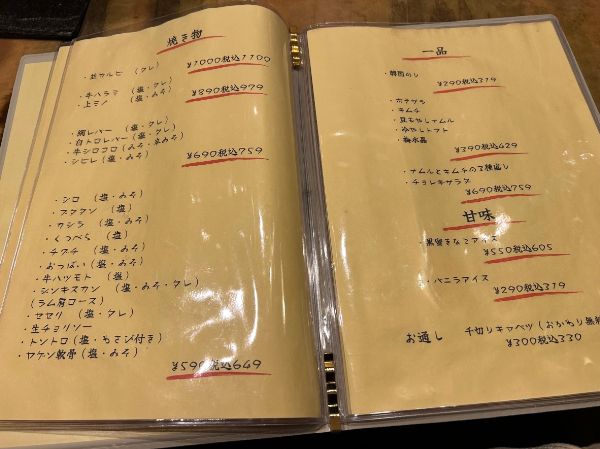 焼き物
・並カルビ （タレ）
¥1000税込1100
・牛ハラミ （塩・タレ）
・上ミノ （塩・みそ）
¥890税込979
・網レバー （塩・タレ）
・白トロレバー（塩・タレ）
・牛シロコロ（みそ・辛みそ）
・シビレ （塩・みそ）
¥690税込759
・シロ （塩・みそ）
・フワワン （塩）
・カシラ （塩・みそ）
・くつべら （塩）
・チクチ （塩・みそ）
・おっぱい（塩・みそ）
・牛ハツモト （塩）
・シンキスワン （塩・みそ・タレ）
（ラム肩ロース）
・セセリ （塩・タレ）
・生チョリソー
・トントロ（塩・わさび付き）
・ヤゲン軟骨（塩・みそ）
¥590税込649
一品
・韓国のり
¥290税込319
・ホナヅラ
・キムチ
・豆もやしナムル
・冷やしトマト
・梅水晶
¥390税込429
・ナムルとキムチの3種盛り
・チョレギサラダ
¥690税込759
甘味
・黒蜜きなこアイス
¥550税込605
・バニラアイス
¥290税込319
お通し 千切りキャベツ（おかわり無料
¥300税込330